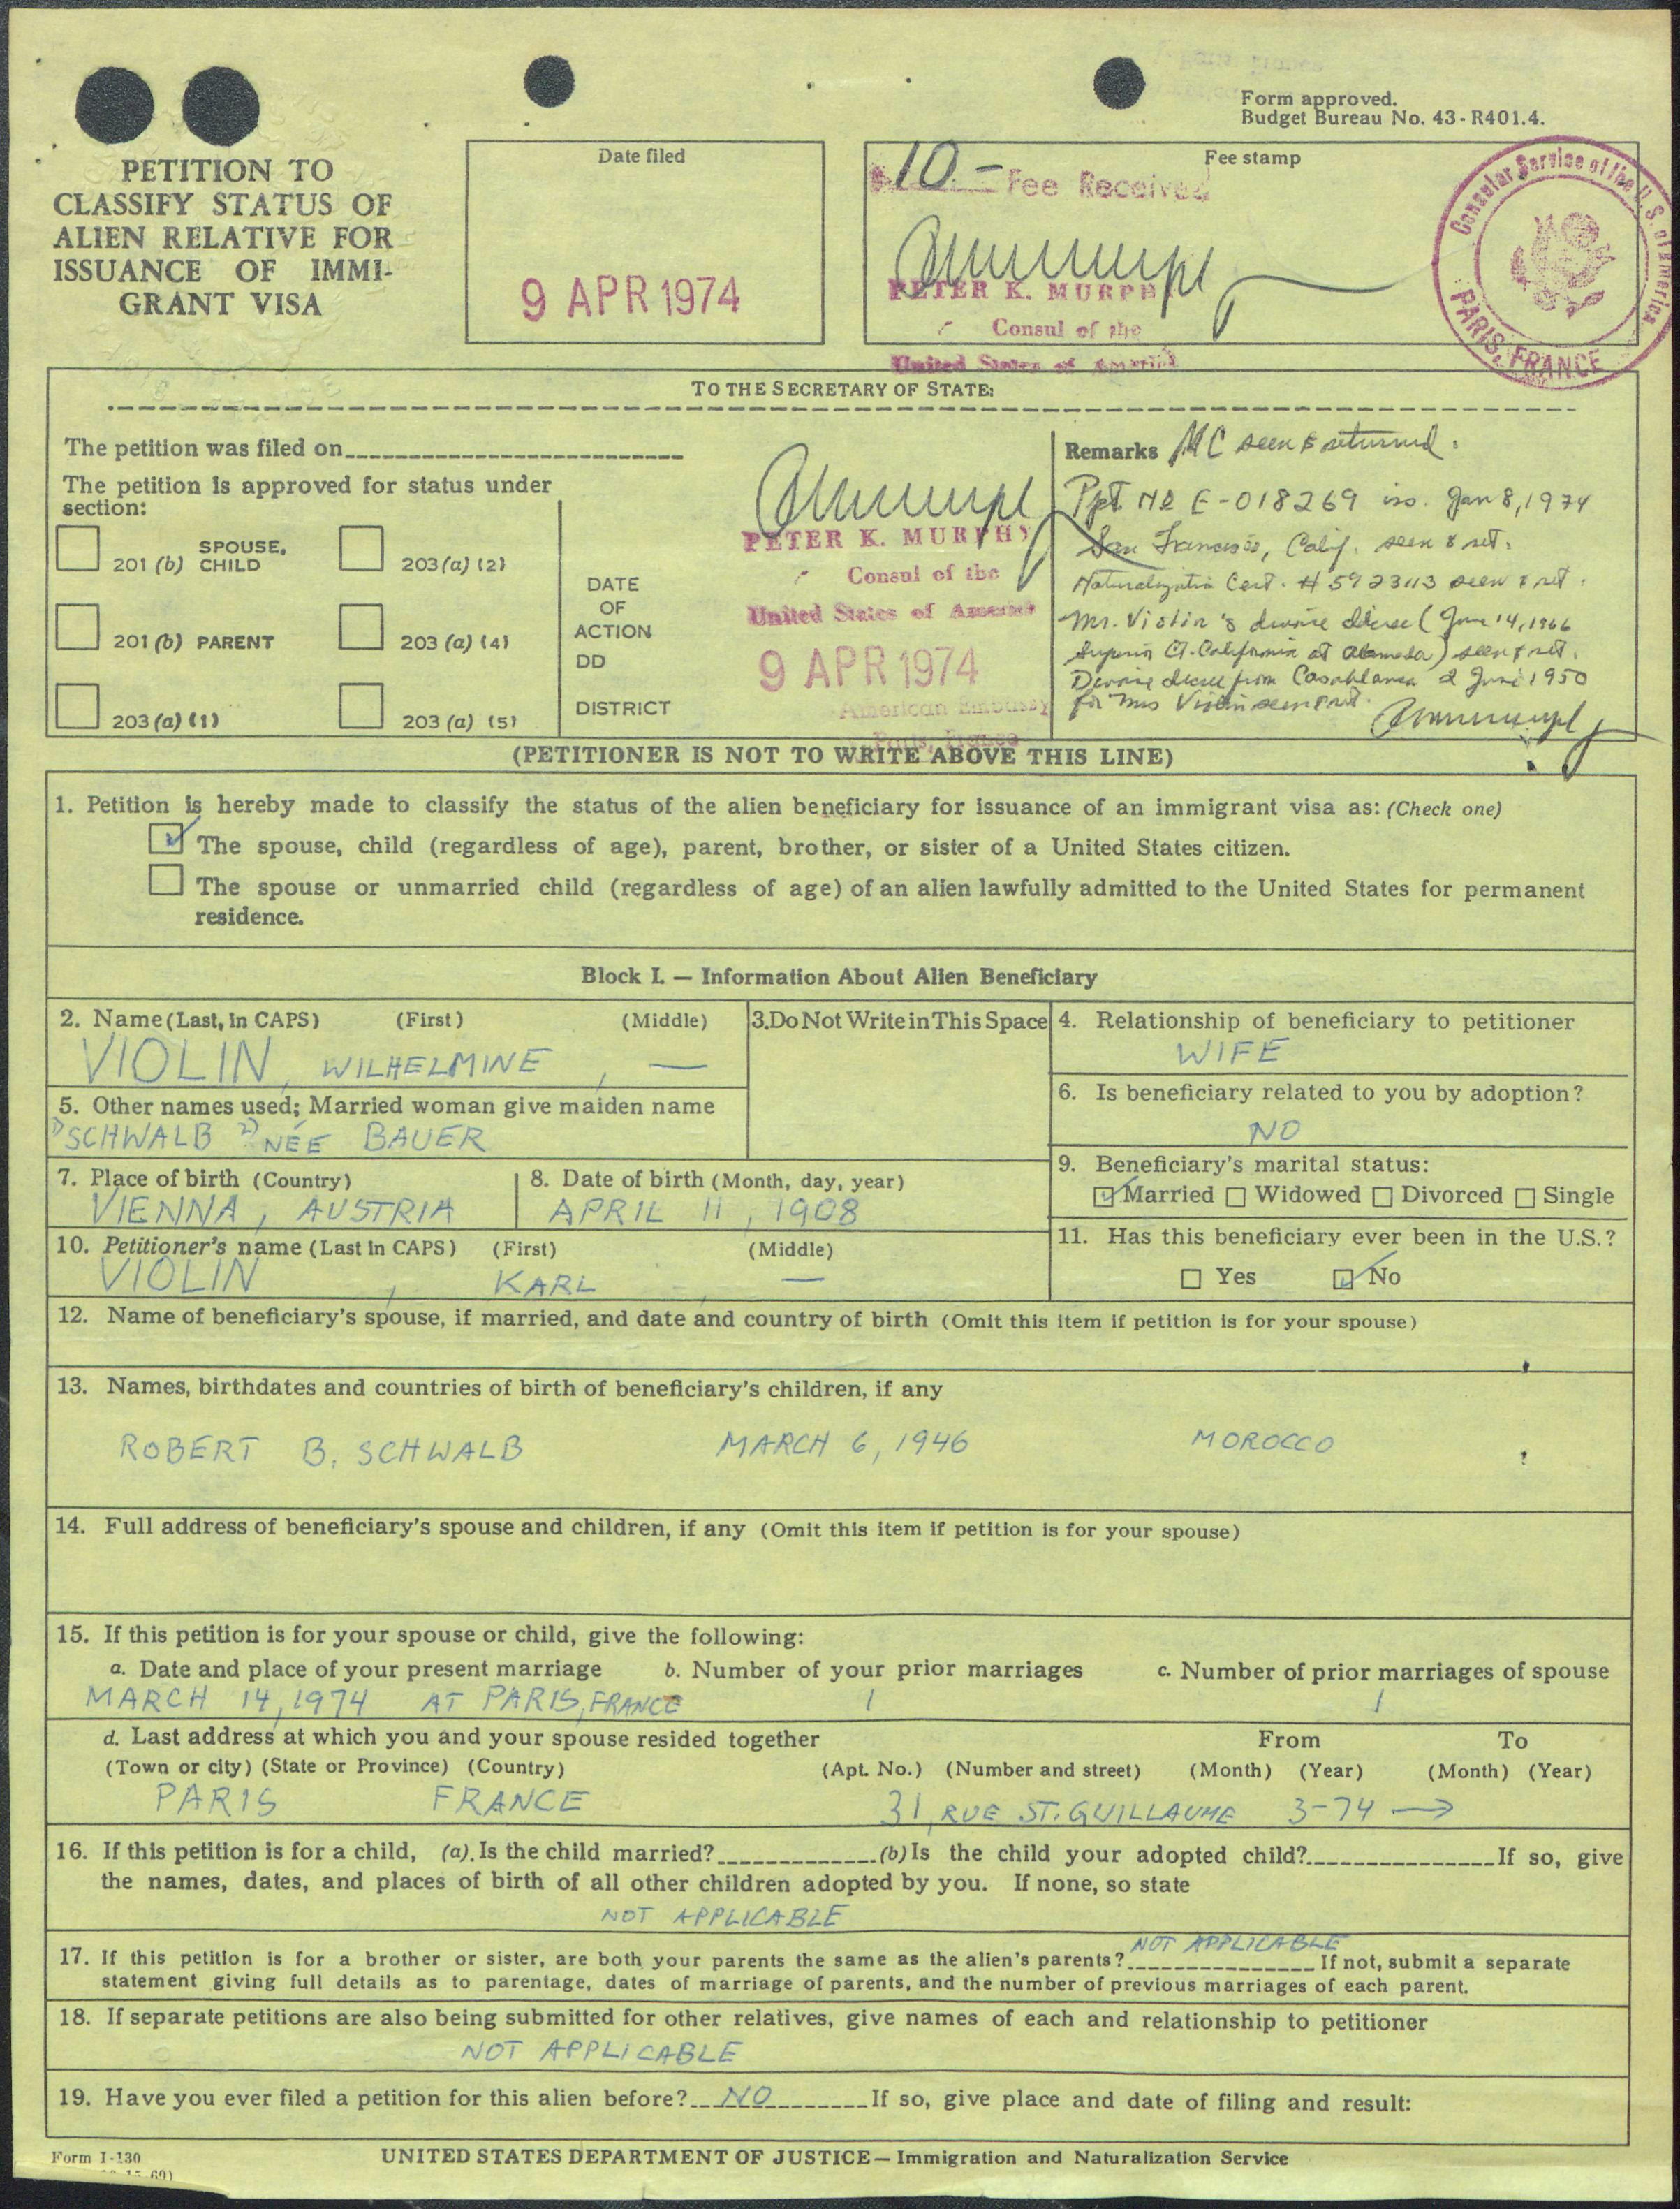 Form approved.
Budget Bureau No. 43-R401.4.
PETITION TO
CLASSIFY STATUS OF
ALIEN RELATIVE FOR
ISSUANCE OF IMMI-
GRANT VISA
Date filed
9 APR 1974
Fee stamp
$10.- Fee Received
PETER K. MURPHY
Consul of the
United States of America
Consular Service of the U.S. of America
PARIS, FRANCE
TO THE SECRETARY OF STATE:
The petition was filed on
The petition is approved for status under
section:
201 (b) SPOUSE, CHILD
203 (a) (2)
201 (b) PARENT
203 (a) (4)
203 (a) (1)
203 (a) (5)
DATE
OF
ACTION
DD
DISTRICT
PETER K. MURPHY
Consul of the
United States of America
9 APR 1974
American Embassy
Paris, France
Remarks MC seen & returned.
Ppt. No E-018269 iss. Jan 8, 1974
San Francisco, Calif. seen & ret.
Naturalization Cert. # 5923113 seen & ret.
Mr. Violin's divorce decree (June 14, 1966
Superior Ct. California at Alameda) seen & ret.
Divorce decree from Casablanca 2 June 1950
for Mrs Violin seen & ret.
(PETITIONER IS NOT TO WRITE ABOVE THIS LINE)
1. Petition is hereby made to classify the status of the alien beneficiary for issuance of an immigrant visa as: (Check one)
The spouse, child (regardless of age), parent, brother, or sister of a United States citizen.
The spouse or unmarried child (regardless of age) of an alien lawfully admitted to the United States for permanent
residence.
Block I. — Information About Alien Beneficiary
2. Name (Last, in CAPS) (First) (Middle)
VIOLIN, WILHELMINE, —
3. Do Not Write in This Space
4. Relationship of beneficiary to petitioner
WIFE
5. Other names used; Married woman give maiden name
1) SCHWALB 2) NÉE BAUER
6. Is beneficiary related to you by adoption?
NO
7. Place of birth (Country)
VIENNA, AUSTRIA
8. Date of birth (Month, day, year)
APRIL 11, 1908
9. Beneficiary's marital status:
Married Widowed Divorced Single
10. Petitioner's name (Last in CAPS) (First) (Middle)
VIOLIN, KARL —
11. Has this beneficiary ever been in the U.S.?
Yes No
12. Name of beneficiary's spouse, if married, and date and country of birth (Omit this item if petition is for your spouse)
13. Names, birthdates and countries of birth of beneficiary's children, if any
ROBERT B. SCHWALB MARCH 6, 1946 MOROCCO
14. Full address of beneficiary's spouse and children, if any (Omit this item if petition is for your spouse)
15. If this petition is for your spouse or child, give the following:
a. Date and place of your present marriage b. Number of your prior marriages c. Number of prior marriages of spouse
MARCH 14, 1974 AT PARIS, FRANCE 1 1
d. Last address at which you and your spouse resided together From To
(Town or city) (State or Province) (Country) (Apt. No.) (Number and street) (Month) (Year) (Month) (Year)
PARIS FRANCE 31, RUE ST. GUILLAUME 3-74 →
16. If this petition is for a child, (a). Is the child married? (b) Is the child your adopted child? If so, give
the names, dates, and places of birth of all other children adopted by you. If none, so state
NOT APPLICABLE
17. If this petition is for a brother or sister, are both your parents the same as the alien's parents? NOT APPLICABLE If not, submit a separate
statement giving full details as to parentage, dates of marriage of parents, and the number of previous marriages of each parent.
18. If separate petitions are also being submitted for other relatives, give names of each and relationship to petitioner
NOT APPLICABLE
19. Have you ever filed a petition for this alien before? NO If so, give place and date of filing and result:
Form I-130
UNITED STATES DEPARTMENT OF JUSTICE — Immigration and Naturalization Service